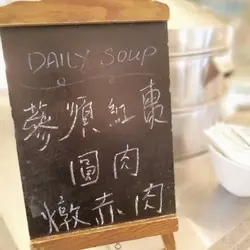 DAILY SOUP
蔘須紅棗
圓肉
燉赤肉